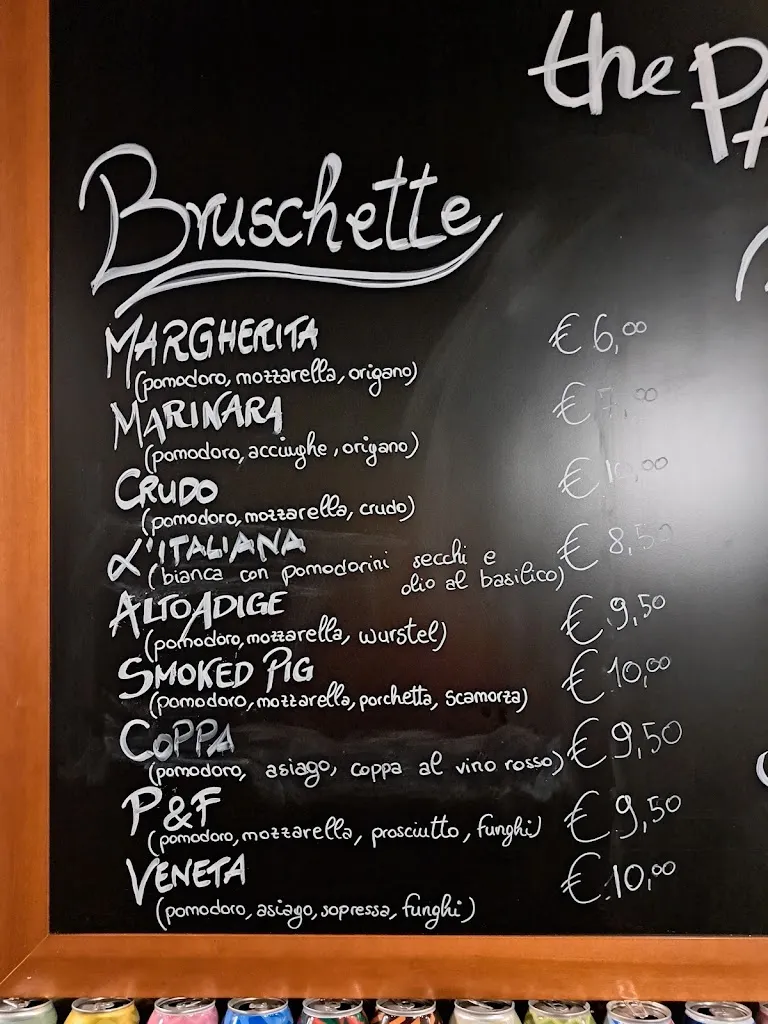 the PA
Bruschette
MARGHERITA € 6,00
(pomodoro, mozzarella, origano)
MARINARA € 7,00
(pomodoro, acciughe, origano)
CRUDO € 10,00
(pomodoro, mozzarella, crudo)
L'ITALIANA € 8,50
(bianca con pomodorini secchi e
olio al basilico)
ALTO ADIGE € 9,50
(pomodoro, mozzarella, wurstel)
SMOKED PIG € 10,00
(pomodoro, mozzarella, porchetta, scamorza)
COPPA € 9,50
(pomodoro, asiago, coppa al vino rosso)
P&F € 9,50
(pomodoro, mozzarella, prosciutto, funghi)
VENETA € 10,00
(pomodoro, asiago, sopressa, funghi)